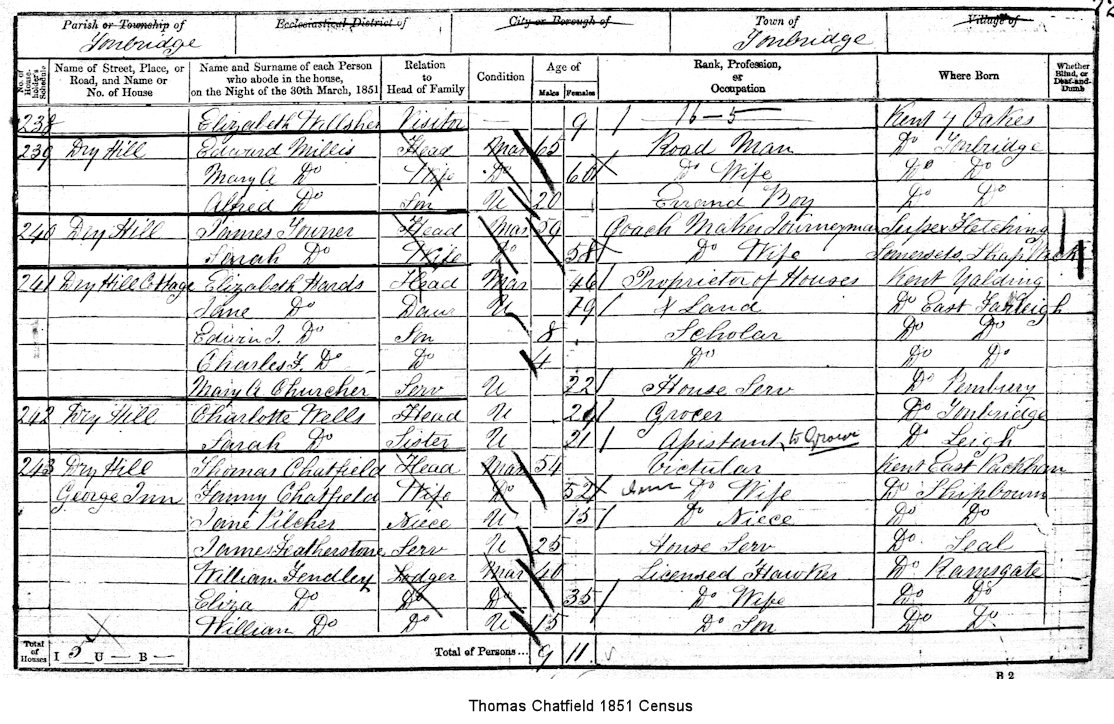 Parish or Township of Ecclesiastical District of City or Borough of Town of Village of
Tonbridge Tonbridge
No. of Householder's Schedule Name of Street, Place, or Road, and Name or No. of House Name and Surname of each Person who abode in the house, on the Night of the 30th March, 1851 Relation to Head of Family Condition Age of Males Females Rank, Profession, or Occupation Where Born Whether Blind, or Deaf-and-Dumb
238 Elizabeth Willsher Visitor — 9 16-5 Kent 7 Oakes
239 Dry Hill Edward Millis Head Mar 65 Road Man Do Tonbridge
Mary A Do Wife Do 60 Do Wife Do Do
Alfred Do Son U 20 Errand Boy Do Do
240 Dry Hill James Turner Head Mar 59 Coach Maker Journeyman Sussex Fletching
Sarah Do Wife Do 58 Do Wife Somersets
241 Dry Hill Cottage Elizabeth Hards Head Mar 46 Proprietor of Houses Kent Yalding
Jane Do Daur U 19 & Land Do East Farleigh
Edwin J. Do Son 8 Scholar Do Do
Charles F. Do Do 4 Do Do Do
Mary A Churcher Serv U 22 House Serv Do Pembury
242 Dry Hill Charlotte Wells Head U 29 Grocer Do Tonbridge
Sarah Do Sister U 21 Assistant to Do Leigh
243 Dry Hill Thomas Chatfield Head Mar 54 Victular Kent East Peckham
George Inn Fanny Chatfield Wife Do 52 Do Wife Do Shipbourn
Jane Pilcher Niece U 15 Do Niece Do Do
James Featherstone Serv U 25 House Serv Do Seal
William Fendley Lodger Mar 40 Licensed Hawker Do Ramsgate
Eliza Do Do Do 35 Do Wife Do Do
William Do Do U 15 Do Son Do Do
Total of Houses I 5 U — B — Total of Persons ... 9 11
B 2
Thomas Chatfield 1851 Census